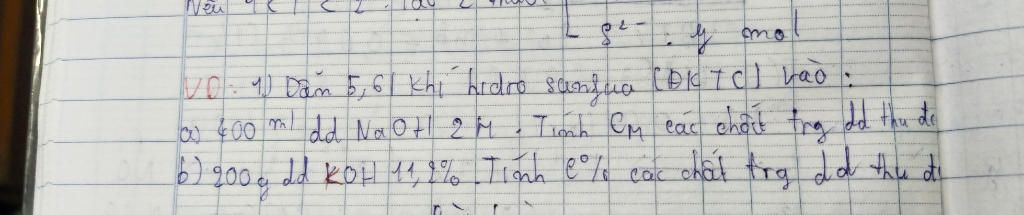 Nếu 1 < T < 2 : Tạo 2
S²⁻ : y mol
VD: 1) Dẫn 5,6l khí hidro sunfua (ĐKTC) vào :
a) 400 ml dd NaOH 2M. Tính CM các chất trg dd thu đc
b) 200g dd KOH 11,2% Tính C% các chất trg dd thu đ